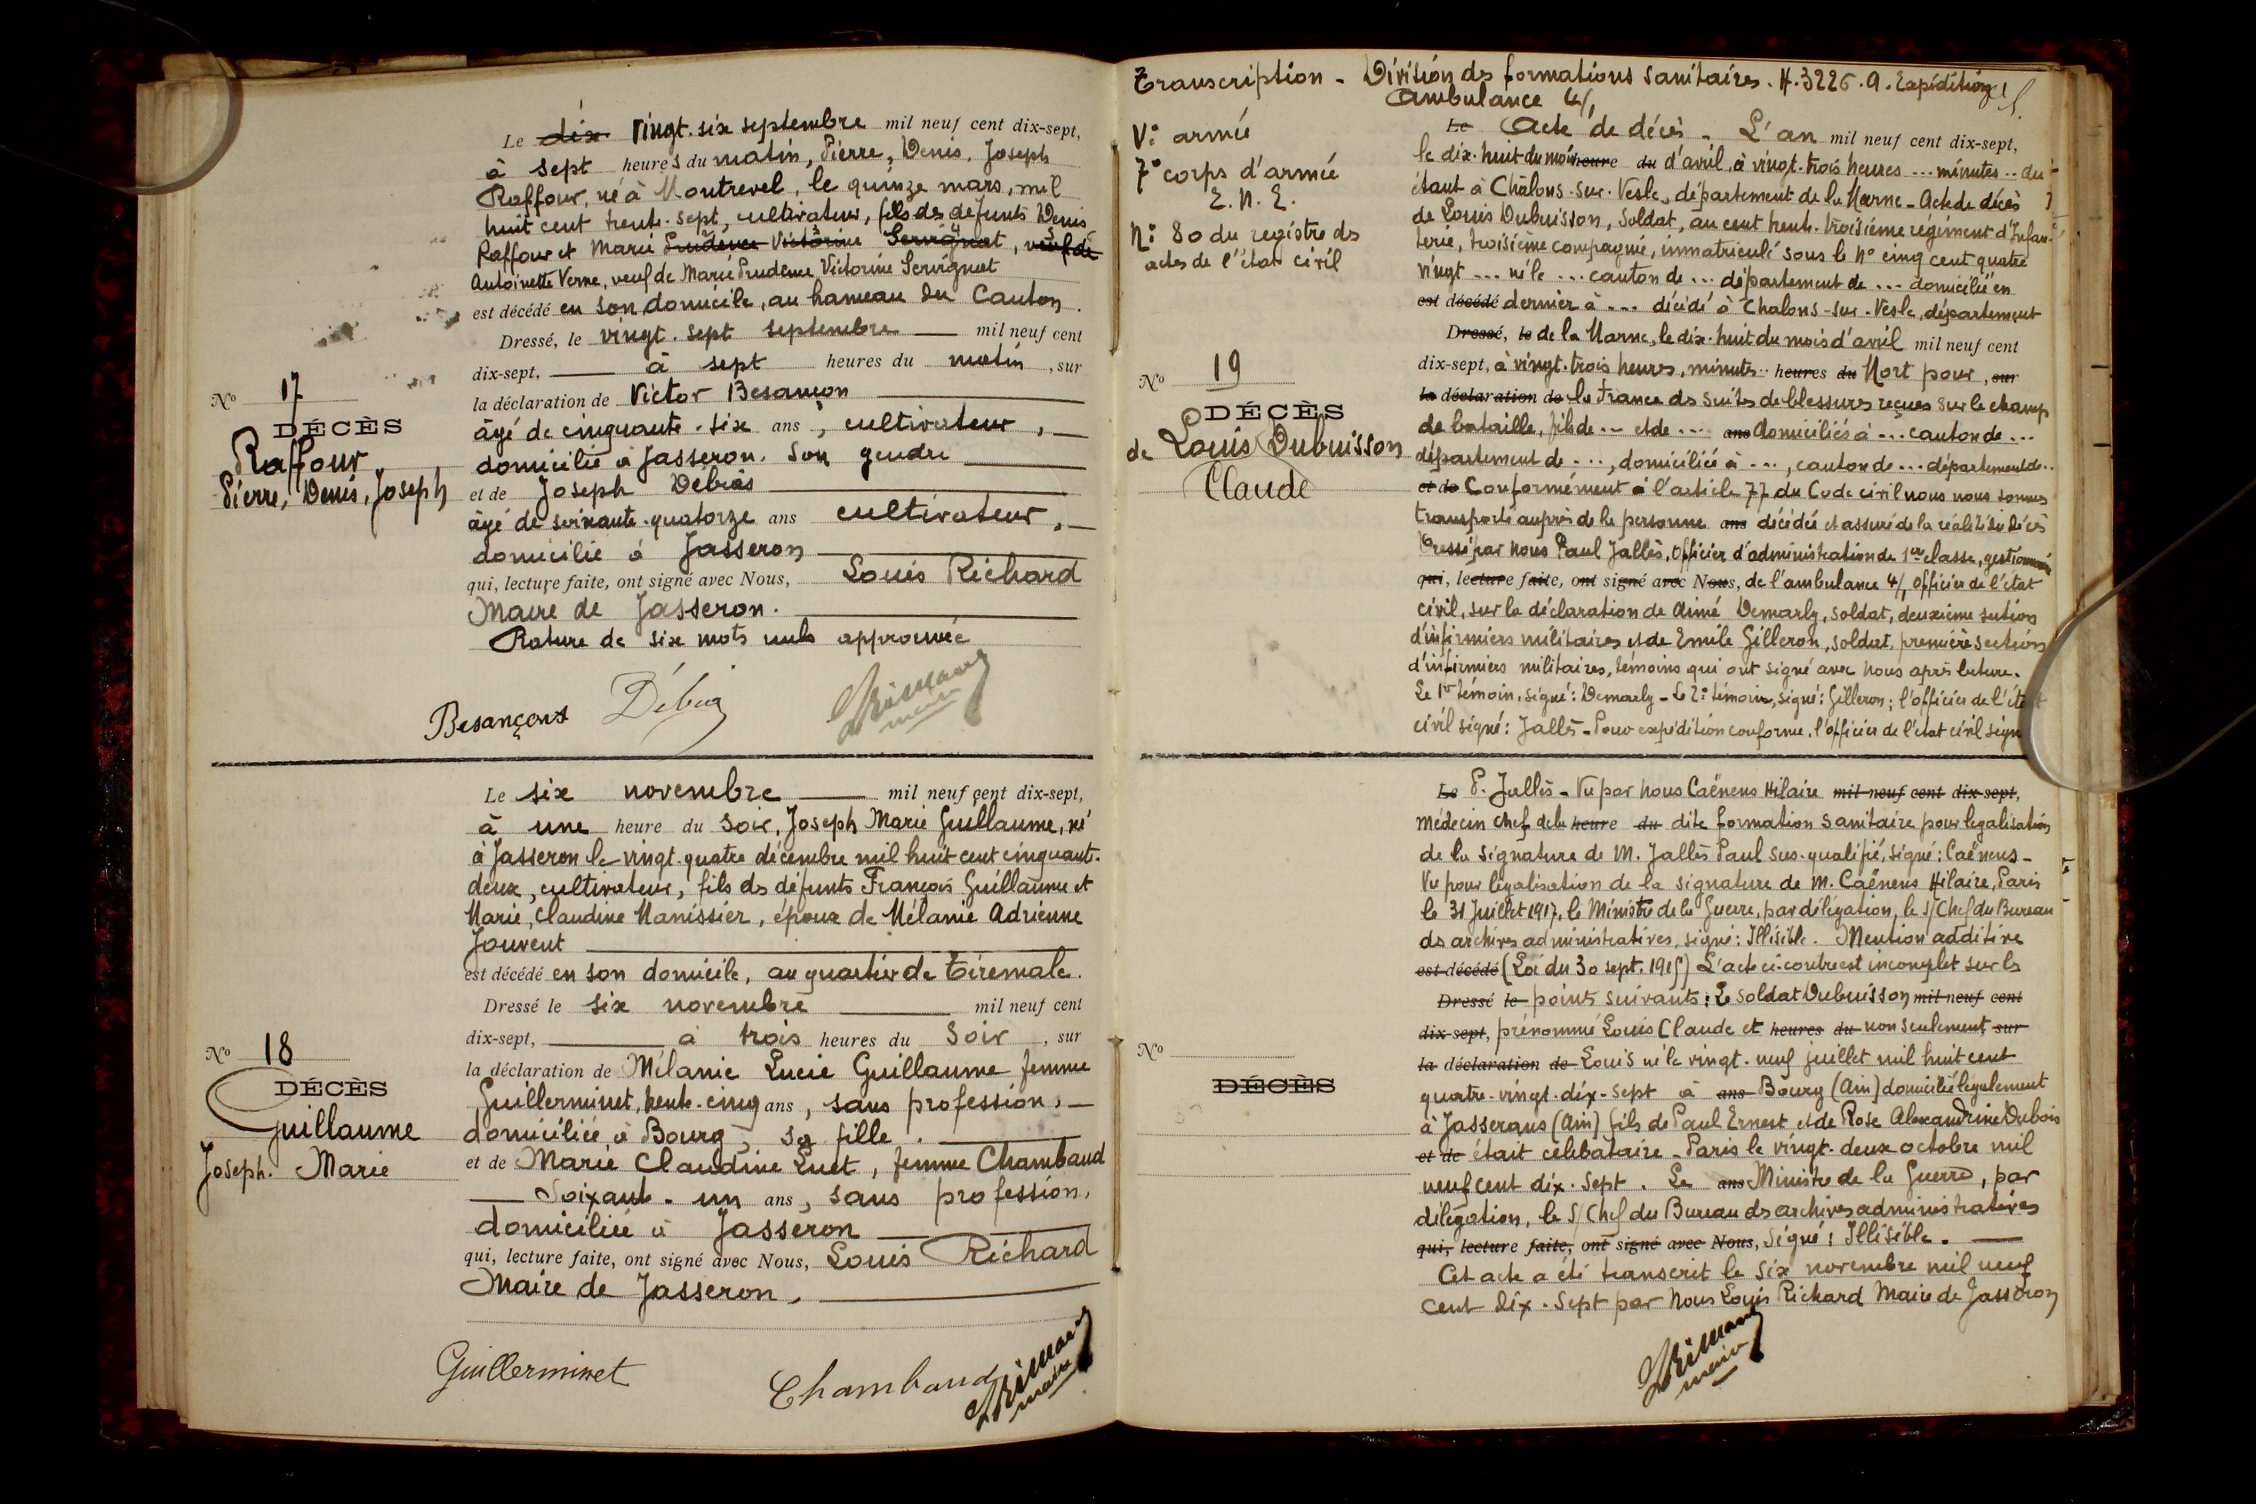 Le dix vingt.six septembre mil neuf cent dix-sept,
à sept heures du matin, Pierre, Denis, Joseph
Raffour, né à Montrevel, le quinze mars, mil
huit cent trente.sept, cultivateur, fils des défunts Denis
Raffour et Marie Prudence Victorine Servignat, veuf de
Antoinette Verne, veuf de Marie Prudence Victorine Servignat
est décédé en son domicile, au hameau du Canton.
Dressé, le vingt.sept septembre mil neuf cent
dix-sept, à sept heures du matin, sur
la déclaration de Victor Besançon
âgé de cinquante.six ans, cultivateur,
domicilié à Jasseron. Son gendre
et de Joseph Débias
âgé de soixante.quatorze ans cultivateur,
domicilié à Jasseron
qui, lecture faite, ont signé avec Nous, Louis Richard
Maire de Jasseron.
Rature de six mots nuls approuvée
Besançon
No 17
DÉCÈS
Raffour
Pierre, Denis, Joseph
Le six novembre mil neuf cent dix-sept,
à une heure du soir, Joseph Marie Guillaume, né
à Jasseron le vingt.quatre décembre mil huit cent cinquante.
deux, cultivateur, fils des défunts François Guillaume et
Marie, Claudine Manissier, époux de Mélanie Adrienne
Jouvent
est décédé en son domicile, au quartier de Tiremale.
Dressé le six novembre mil neuf cent
dix-sept, à trois heures du soir, sur
la déclaration de Mélanie Lucie Guillaume femme
Guillerminet, trente.cinq ans, sans profession,
domiciliée à Bourg, sa fille.
et de Marie Claudine Luet, femme Chambaud
Soixante.un ans, sans profession,
domiciliée à Jasseron
qui, lecture faite, ont signé avec Nous, Louis Richard
Maire de Jasseron,
Guillerminet
Chambaud
maire
No 18
DÉCÈS
Guillaume
Joseph. Marie
Transcription - Division des formations sanitaires. N. 3226. A. Expédition
Ambulance 4/1
Ve armée
7e corps d'armée
E. N. E.
No 80 du registre des
actes de l'état civil
No 19
DÉCÈS
de Louis Dubuisson
Claude
Le Acte de décès - L'an mil neuf cent dix-sept,
le dix.huit du mois heure du d'avril, à vingt.trois heures ... minutes .. du
étant à Châlons.sur.Vesle, département de la Marne - Acte de décès
de Louis Dubuisson, soldat, au cent trente.troisième régiment d'Infan-
terie, troisième compagnie, immatriculé sous le No cinq cent quatre
vingt ... né le ... canton de ... département de ... domicilié en
est décédé dernier à ... décédé à Chalons-sur-Vesle, département
Dressé, le de la Marne, le dix.huit du mois d'avril mil neuf cent
dix-sept, à vingt.trois heures, minutes .. heures du Mort pour, sur
la déclaration de la France des suites de blessures reçues sur le champ
de bataille, fils de ... et de ... ans domiciliés à ... canton de ...
département de ..., domicilié à ..., canton de ... département de ..
et de Conformément à l'article 77 du Code civil nous nous sommes
transporté auprès de la personne ans décédée et assuré de la réalité du décès
Dressé par nous Paul Jallès, Officier d'administration de 1ère classe, gestionnaire
qui, lecture faite, ont signé avec Nous, de l'ambulance 4/1, Officier de l'état
civil, sur la déclaration de Aimé Demarly, soldat, deuxième section
d'infirmiers militaires et de Emile Gilleron, soldat, première section
d'infirmiers militaires, témoins qui ont signé avec nous après lecture.
Le 1er témoin, signé: Demarly - le 2e témoin, signé: Gilleron; l'officier de l'état
civil signé: Jallès - Pour expédition conforme, l'officier de l'état civil signé
Le P. Jallès - Vu par nous Caënens Hilaire mil neuf cent dix-sept,
médecin chef de la heure du dite formation sanitaire pour légalisation
de la signature de M. Jallès Paul sus.qualifié, signé: Caënens -
Vu pour légalisation de la signature de M. Caënens Hilaire, Paris
le 31 Juillet 1917, le Ministre de la Guerre, par délégation, le S/Chef du Bureau
des archives administratives, signé: Illisible. Mention additive
est décédé (Loi du 30 sept. 1915) L'acte ci-contre est incomplet sur les
Dressé le points suivants: Le soldat Dubuisson mil neuf cent
dix-sept, prénommé Louis Claude et heures du non seulement sur
la déclaration de Louis né le vingt.neuf juillet mil huit cent
quatre-vingt.dix-sept à ans Bourg (Ain) domicilié légalement
à Jasserans (Ain) fils de Paul Ernest et de Rose Alexandrine Dubois
et de était célibataire - Paris le vingt.deux octobre mil
neuf cent dix.sept. Le ans Ministre de la Guerre, par
délégation, le S/Chef du Bureau des archives administratives
qui, lecture faite, ont signé avec Nous, Signé: Illisible.
Cet acte a été transcrit le six novembre mil neuf
cent dix.sept par Nous Louis Richard Maire de Jasseron
maire
No
DÉCÈS